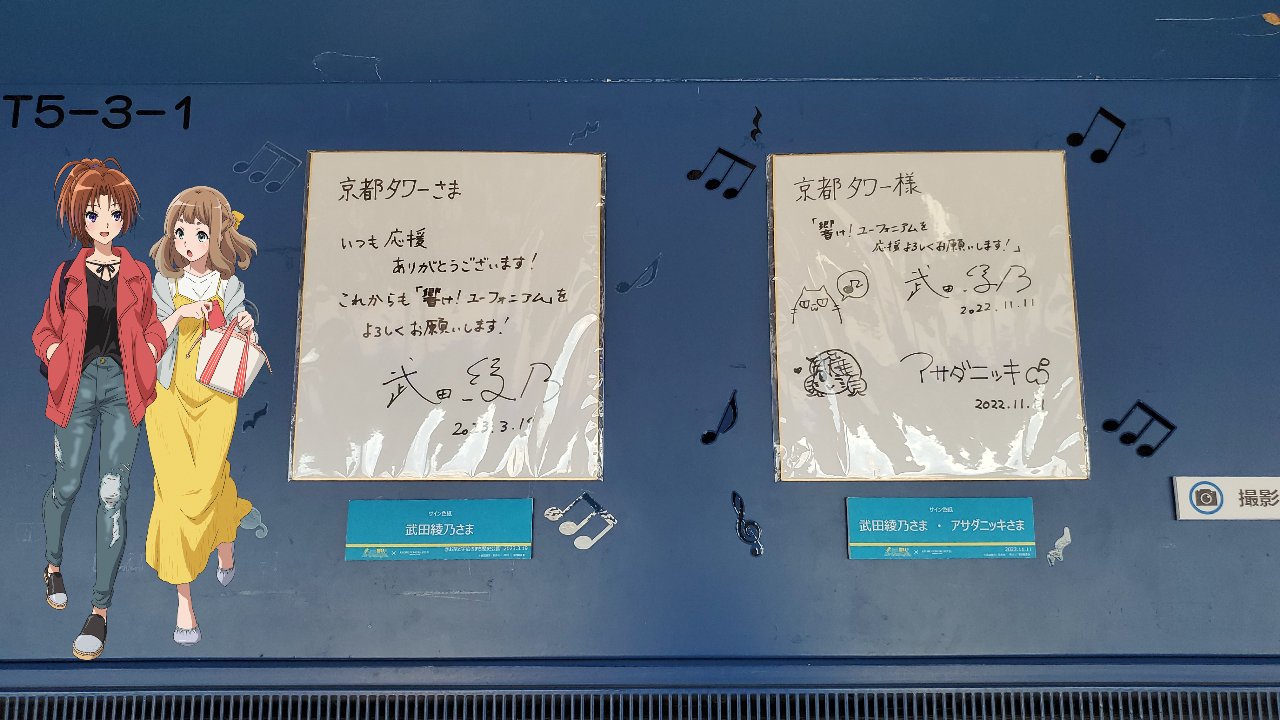 T5-3-1
京都タワーさま
いつも応援
ありがとうございます!
これからも「響け!ユーフォニアム」を
よろしくお願いします!
武田綾乃
2023.3.19
サイン色紙
武田綾乃さま
京都タワー様
「響け!ユーフォニアムを
応援よろしくお願いします!」
武田綾乃
2022.11.11
アサダニッキ
2022.11.11
サイン色紙
武田綾乃さま ・ アサダニッキさま
2022.11.11
撮影